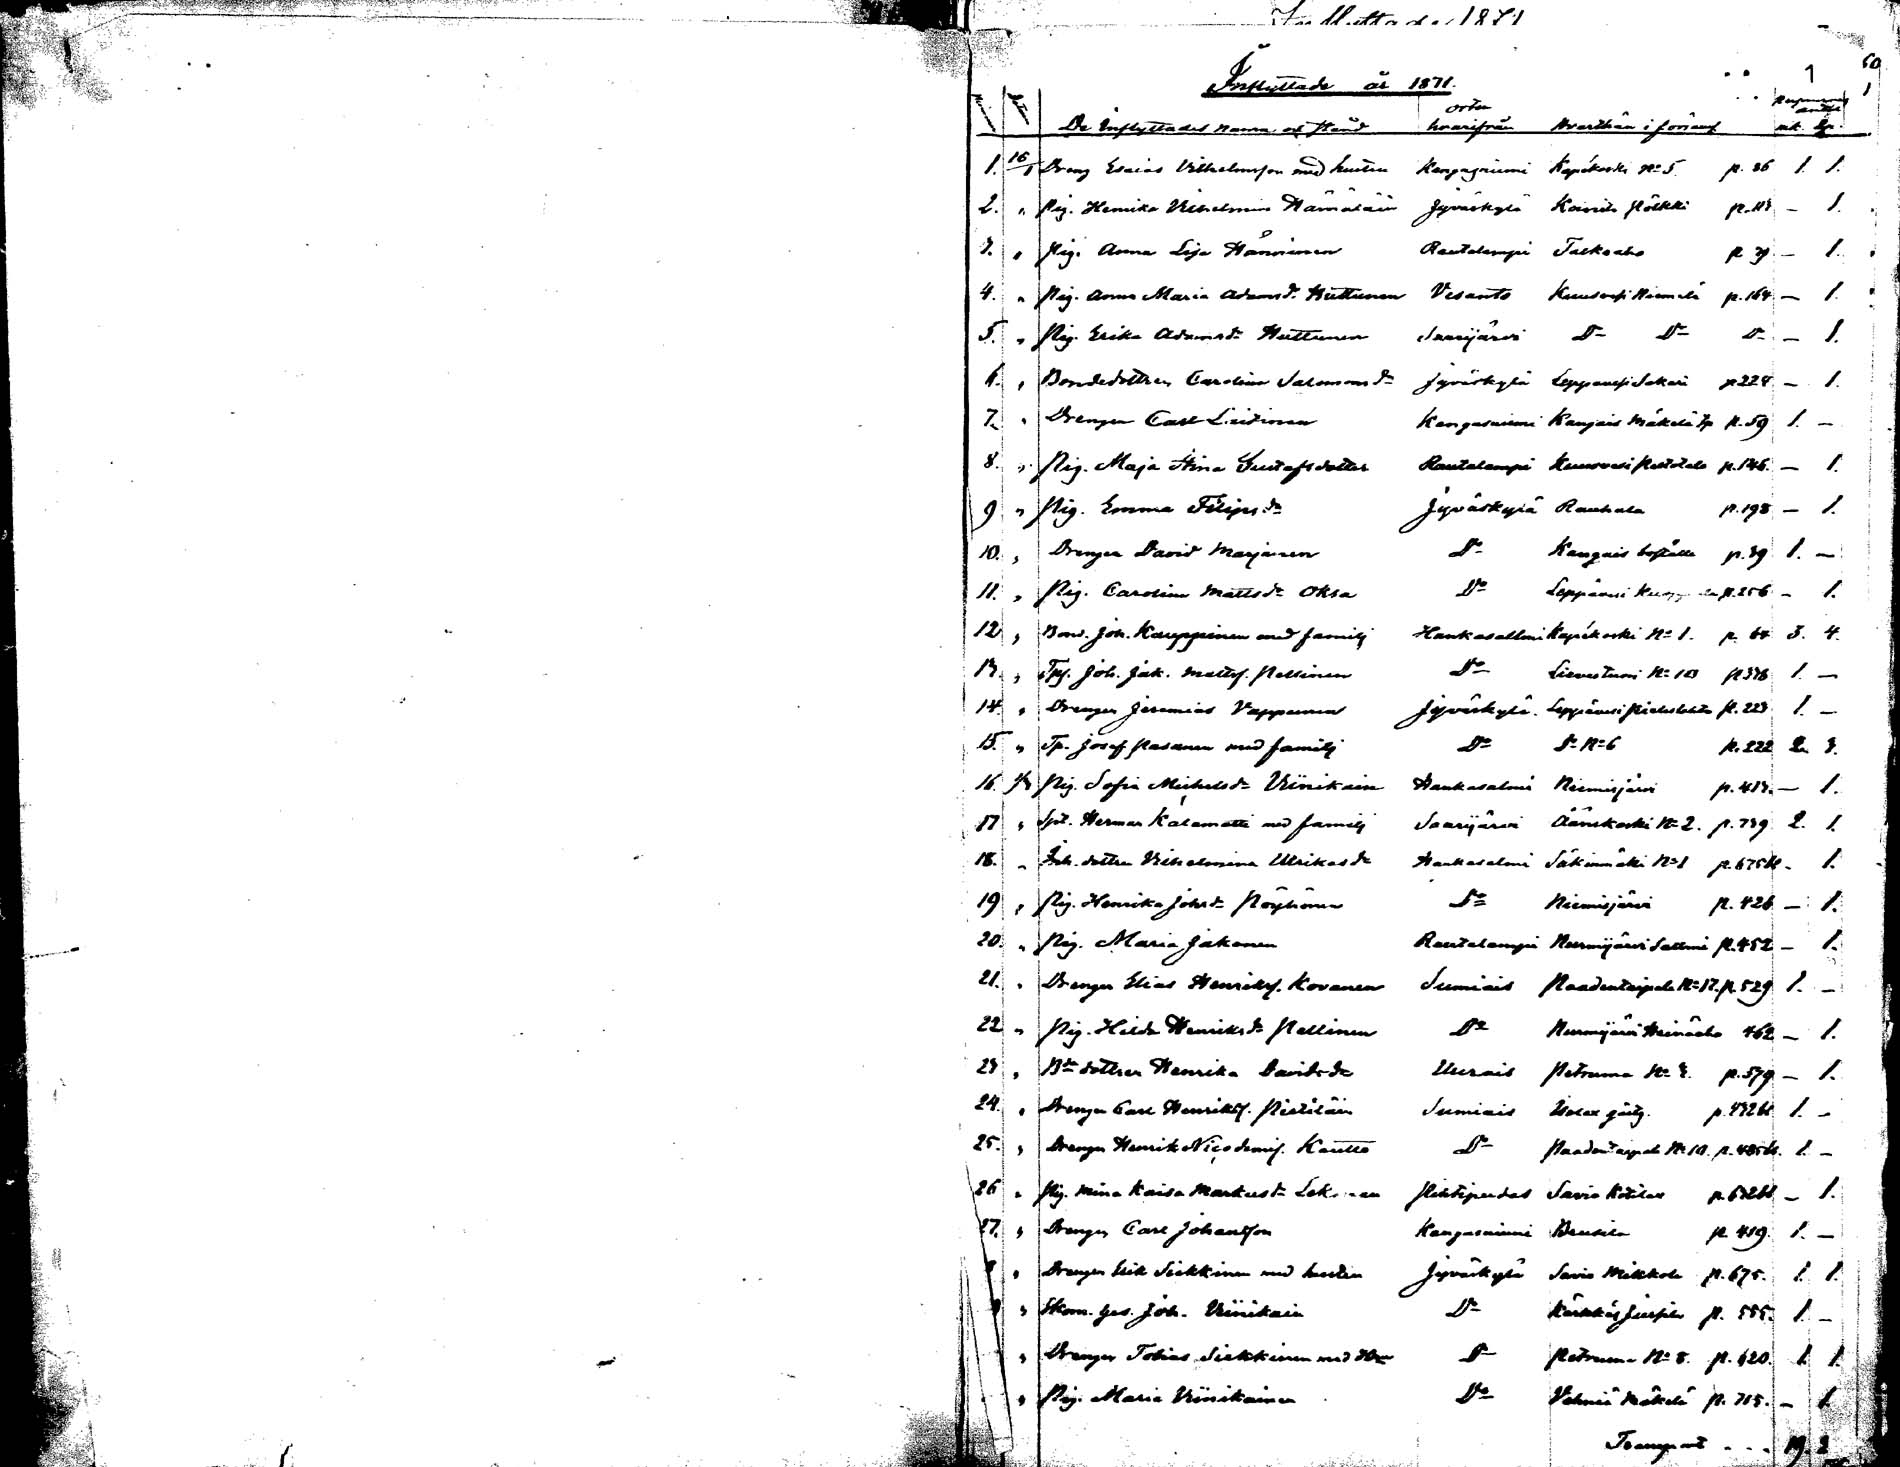 Inflyttade 1871
60
1
Inflyttade år 1871.
De Inflyttades namn och stånd orten hvarifrån Hvarthän i förs. mk. qk.
1. 16/1 Dreng Esaias Vilhelmsson med hustru Kangasniemi Kapékoski No 5 p. 36 1. 1.
2. " Pig. Henrika Vilhelmina Hämäläin Jyväskylä Koivisto Pölkki p. 113 – 1.
3. " Pig. Anna Lisa Hänninen Rautalampi p. 39 – 1.
4. " Pig. Anna Maria Adamsdr Huttunen Vesanto Kuusvesi Niemelä p. 164 – 1.
5. " Pig. Erika Adamsdr Huttunen Saarijärvi Do Do Do – 1.
6. " Bondedottren Carolina Salomonsdr Jyväskylä Leppävesi Sakari p. 224 – 1.
7. " Drengen Carl Laitinen Kangasniemi Kangais Mäkelä Tp p. 59 1. –
8. " Pig. Maja Stina Gustafsdotter Rautalampi Kuusvesi p. 146. – 1.
9 " Pig. Emma Filipsdr Jyväskylä Rauhala p. 198 – 1.
10. " Drengen David Marjanen Do Kangais boställe p. 39 1. –
11. " Pig. Carolina Mattsdr Oksa Do Leppävesi p. 256 – 1.
12 " Bond. Joh. Kauppinen med familj Hankasalmi Kapékoski No 1. p. 64 3. 4.
13. " Tpf. Joh. Jak. Mattss. Pellinen Do Lievestuore No 10 p. 376 1. –
14 " Drengen Jeremias Vappunen Jyväskylä. Leppävesi p. 223 1. –
15. " Tp. Josef Pasanen med familj Do Do No 6 p. 222 2. 3.
16. Pig. Sofia Michelsdr Viinikain Hankasalmi Niemisjärvi p. 413. – 1.
17 " Spt. Herman Kalamatti med familj Saarijärvi Äänekoski No 2. p. 739 2. 1.
18. " Inh. dottren Vilhelmina Ulrikasdr Hankasalmi Säkinmäki No 1 p. 675 bl – 1.
19 " Pig. Henrika Johsdr Pöyhönen Do Niemisjärvi p. 426 – 1.
20. " Pig. Maria Jakonen Rautalampi Nurmijärvi Salmi p. 452 – 1.
21. " Drengen Elias Henrikss. Kovanen Sumiais Paadentaipale No 17. p. 529 1. –
22 " Pig. Hilda Henriksdr Pellinen Do Nurmijärvi Heinäaho 462 – 1.
23 " Bde dottren Henrika Davidsdr Uurais Petruma No 3. p. 579 – 1.
24. " Drengen Carl Henrikss. Pietiläin Sumiais p. 432 bl 1. –
25. " Drengen Henrik Nicodemiss. Kautto Do Paadentaipale No 10. p. 485 bl. 1. –
26 " Pig. Mina Kaisa Markusdr Pihtipudas Savio Kötilar p. 672 bl – 1.
27. " Drengen Carl Johansson Kangasniemi p. 419. 1. –
8 " Drengen Erik Siekkinen med hustru Jyväskylä Savio Mikkola p. 675. 1. 1.
9 " Skom. ges. Joh. Viinikain Do p. 555. 1. –
" Drengen Tobias Siekkinen med Hu Do Petruma No 8. p. 620. 1. 1.
" Pig. Maria Viinikainen Do Vehniä Mäkelä p. 715. – 1.
Transport - - - 19. 2